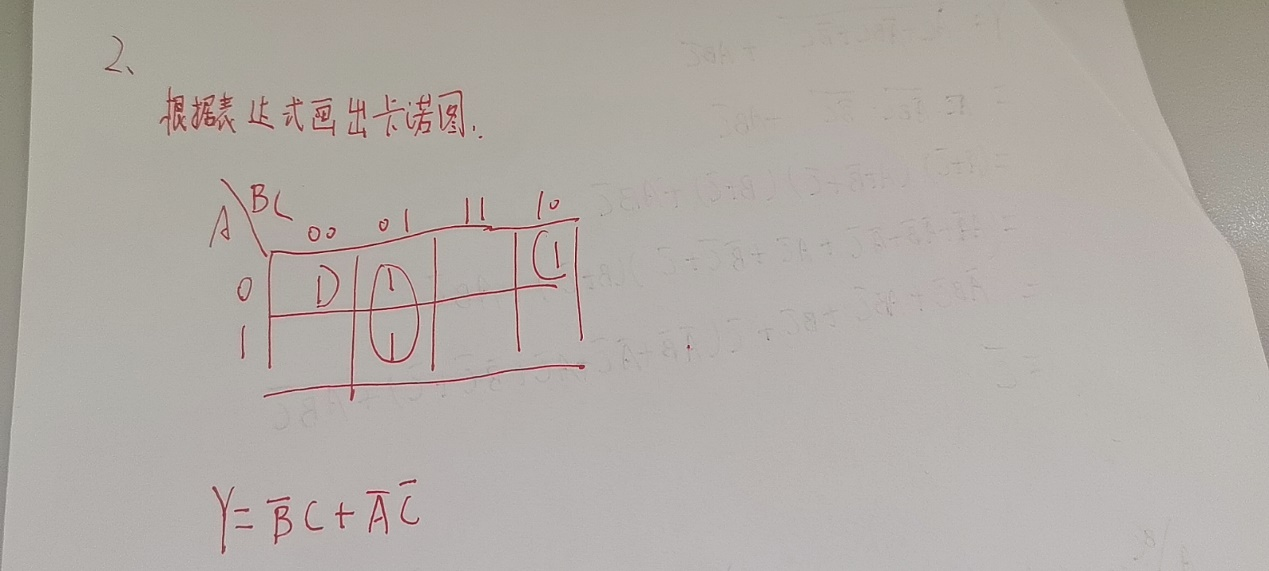 2、
根据表达式画出卡诺图.
A\BC 00 01 11 10
0 1 1 1
1 1
Y=B̅C+A̅C̅